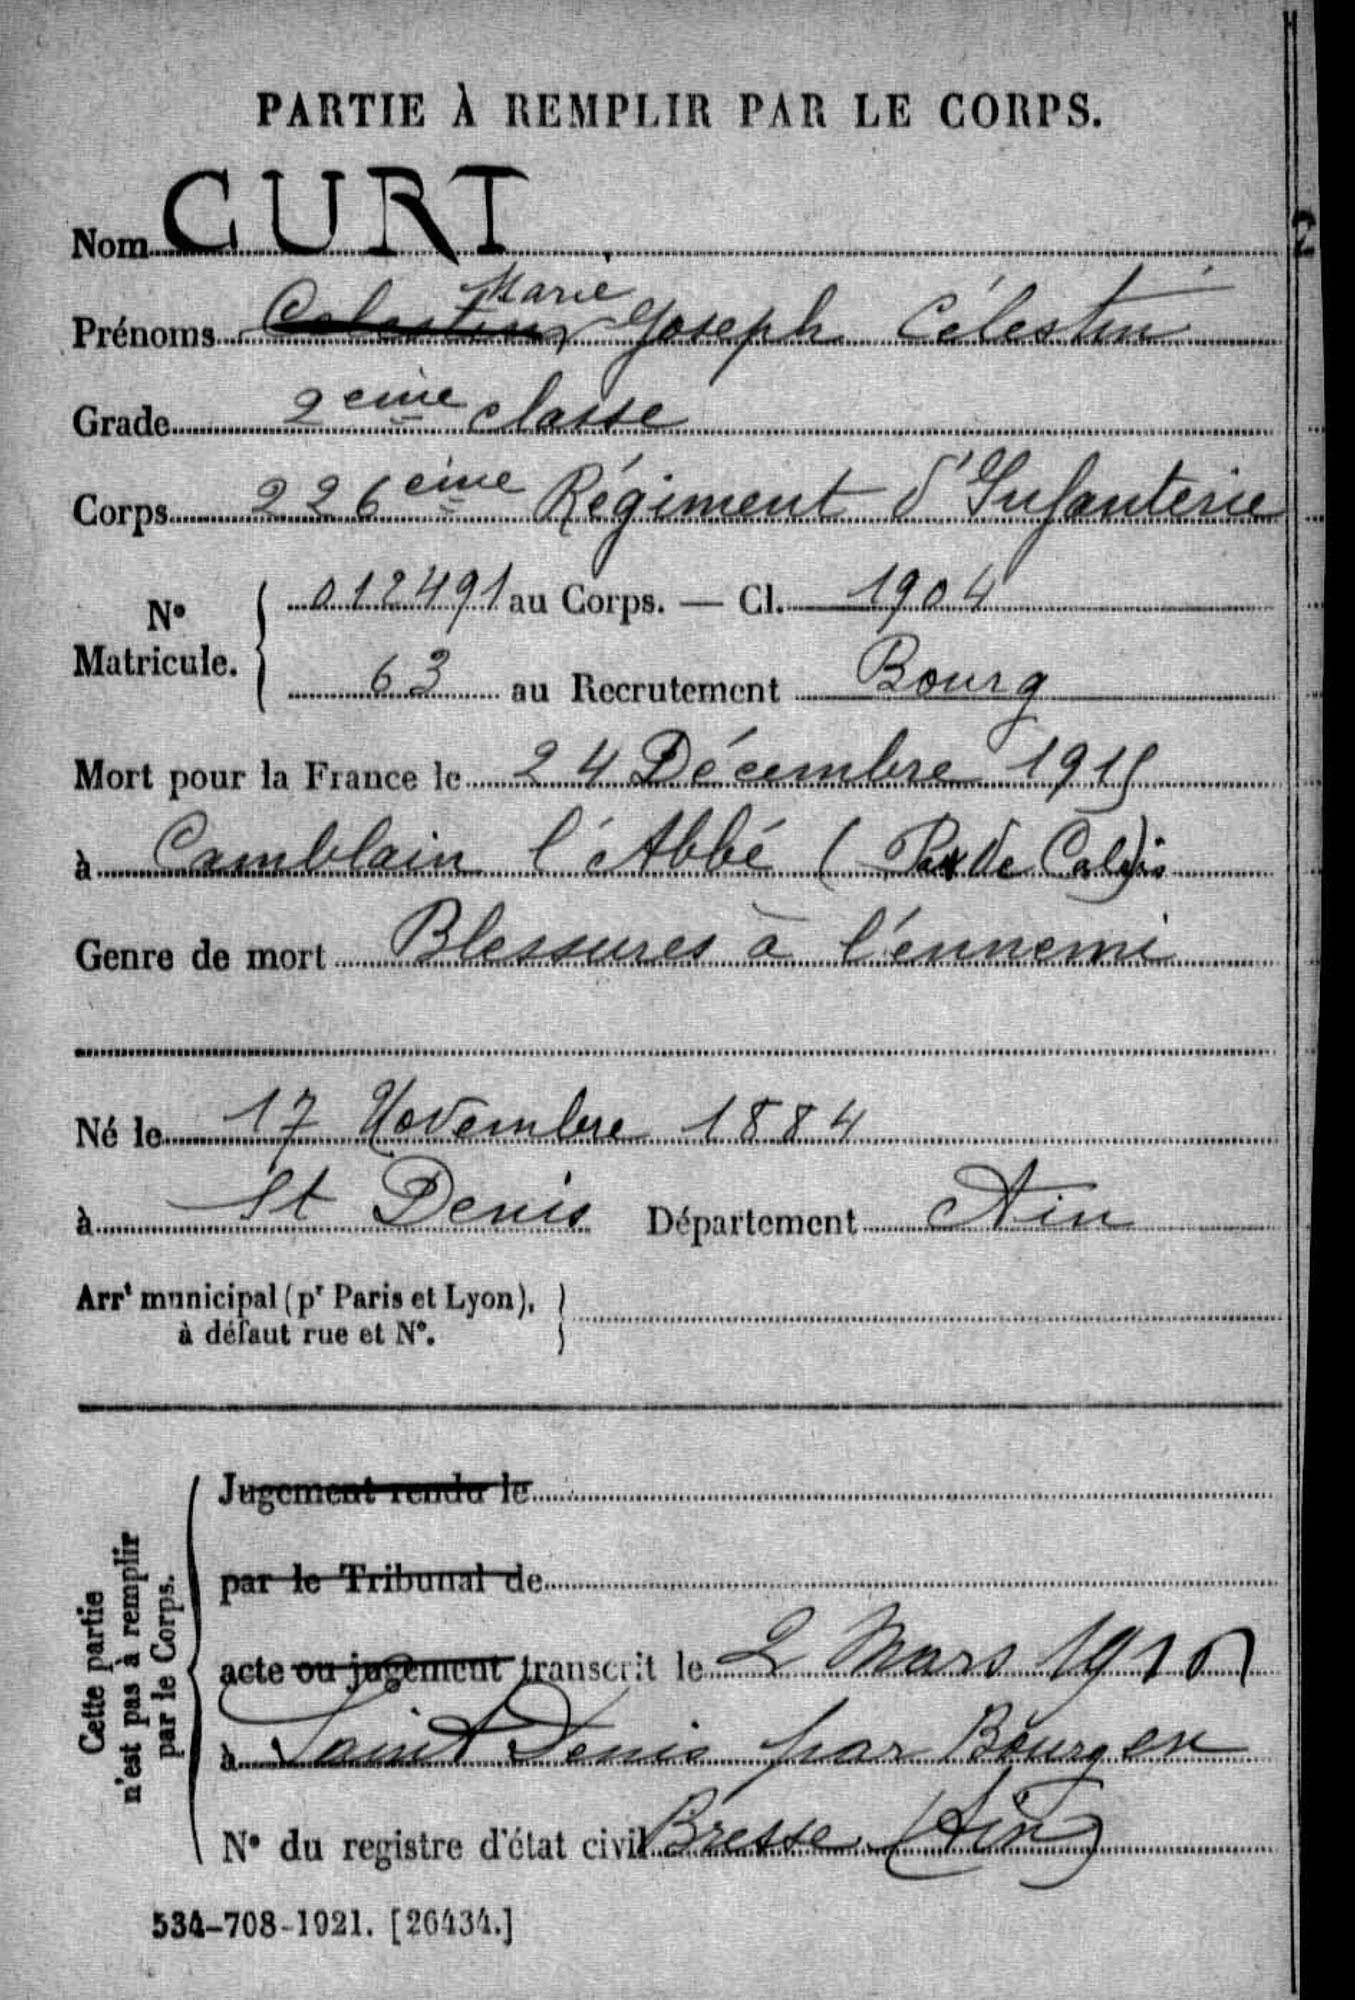 PARTIE À REMPLIR PAR LE CORPS.
Nom CURT
Prénoms Celestin Marie Joseph Célestin
Grade 2eme classe
Corps 226eme Régiment d'Infanterie
N° Matricule. 012491 au Corps. — Cl. 1904
63 au Recrutement Bourg
Mort pour la France le 24 Décembre 1915
à Camblain l'Abbé (Pas de Calais)
Genre de mort Blessures à l'ennemi
Né le 17 Novembre 1884
à St Denis Département Ain
Arrt municipal (pr Paris et Lyon),
à défaut rue et N°.
Cette partie
n'est pas à remplir
par le Corps.
Jugement rendu le
par le Tribunal de
acte ou jugement transcrit le 2 Mars
à Saint Denis par Bourg en
N° du registre d'état civil Bresse (Ain)
534-708-1921. [26434.]